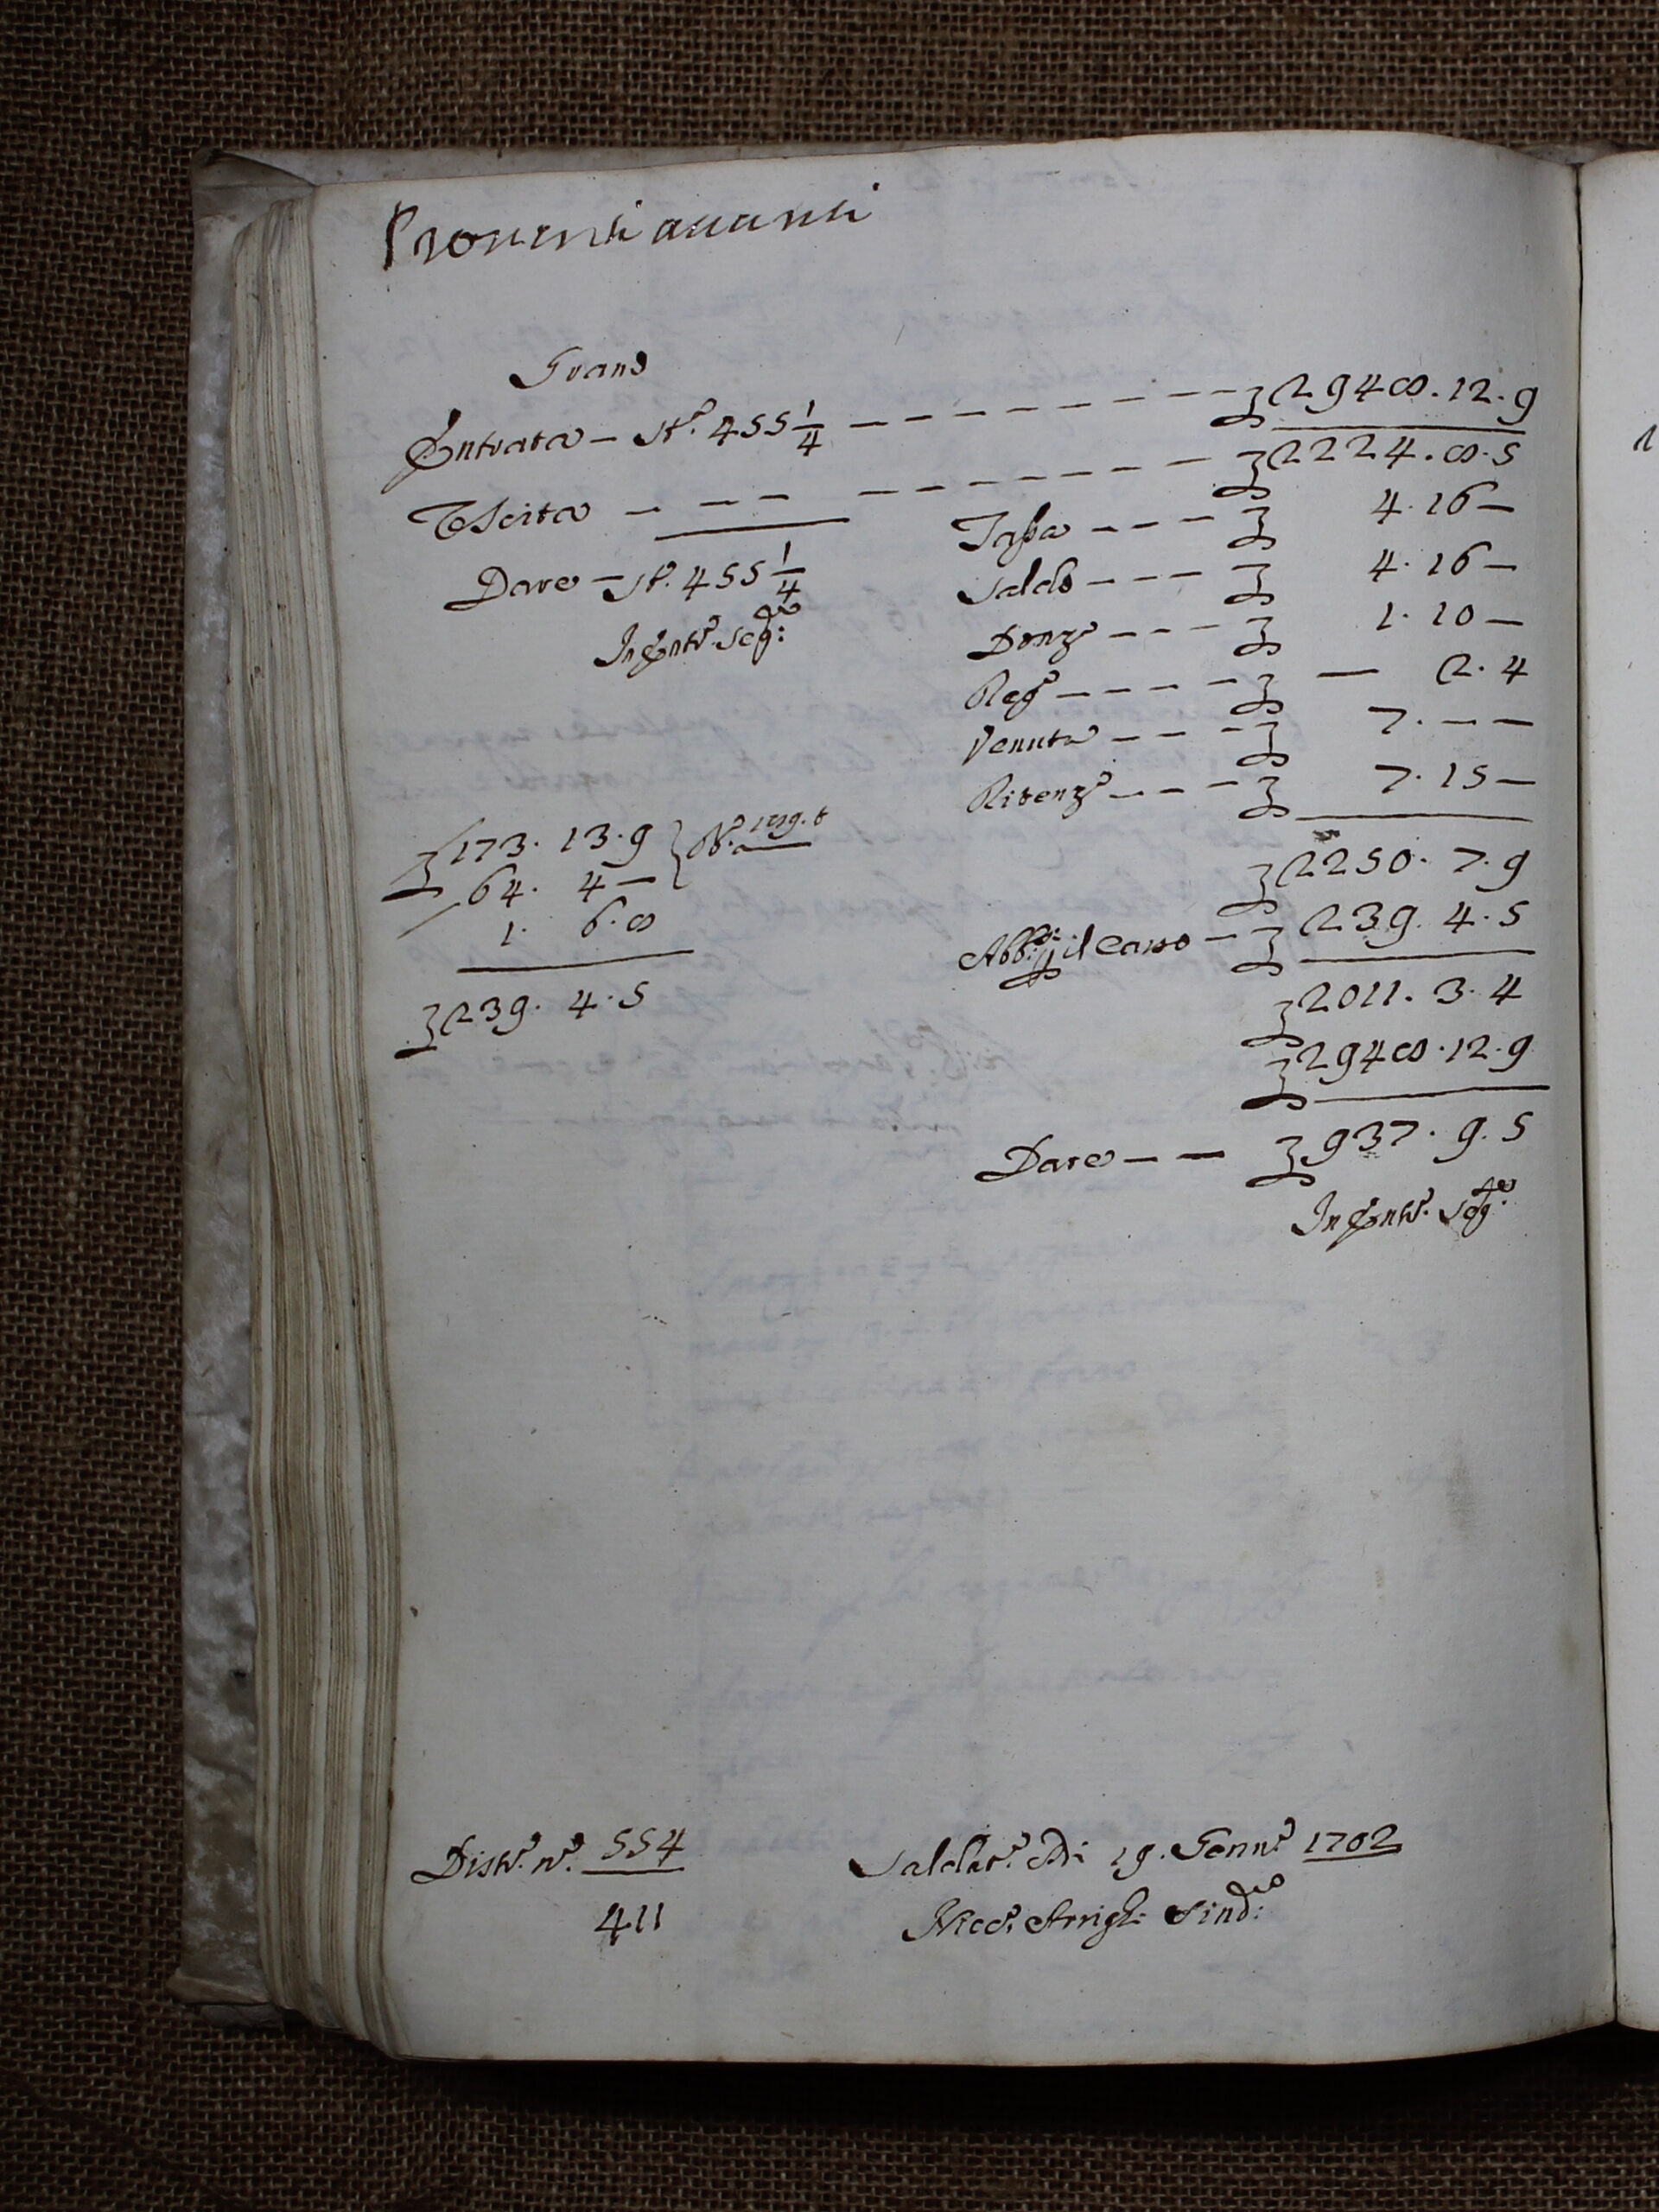 Proventi avanti
Grano
Entrata — St.ª 455 1/4 — — — — — — — — £ 2948.12.9
Uscita — — — — — — — — — — — £ 2224.8.5
Tassa — — — £ 4.16 —
Dare — St. 455 1/4
Saldo — — — £ 4.16 —
In Entr.ª Seg.te
Donz.º — — — £ 1.10 —
Rog.º — — — — £ — 2.4
Venuta — — — £ 7. — —
Ritenz.º — — — £ 7.15 —
£ 173. 13. 9
64. 4 —
1. 6. 8
£ 2250. 7. 9
Abb.si p il Caso — £ 239. 4. 5
£ 239. 4. 5
£ 2011. 3. 4
£ 2948.12.9
Dare — — £ 937. 9. 5
In Entr.ª Seg.te
Distr.º n.º 554
411
Saldat.º Adi 19. Genn.º 1702
Nicc.º Arrighi Sind.co